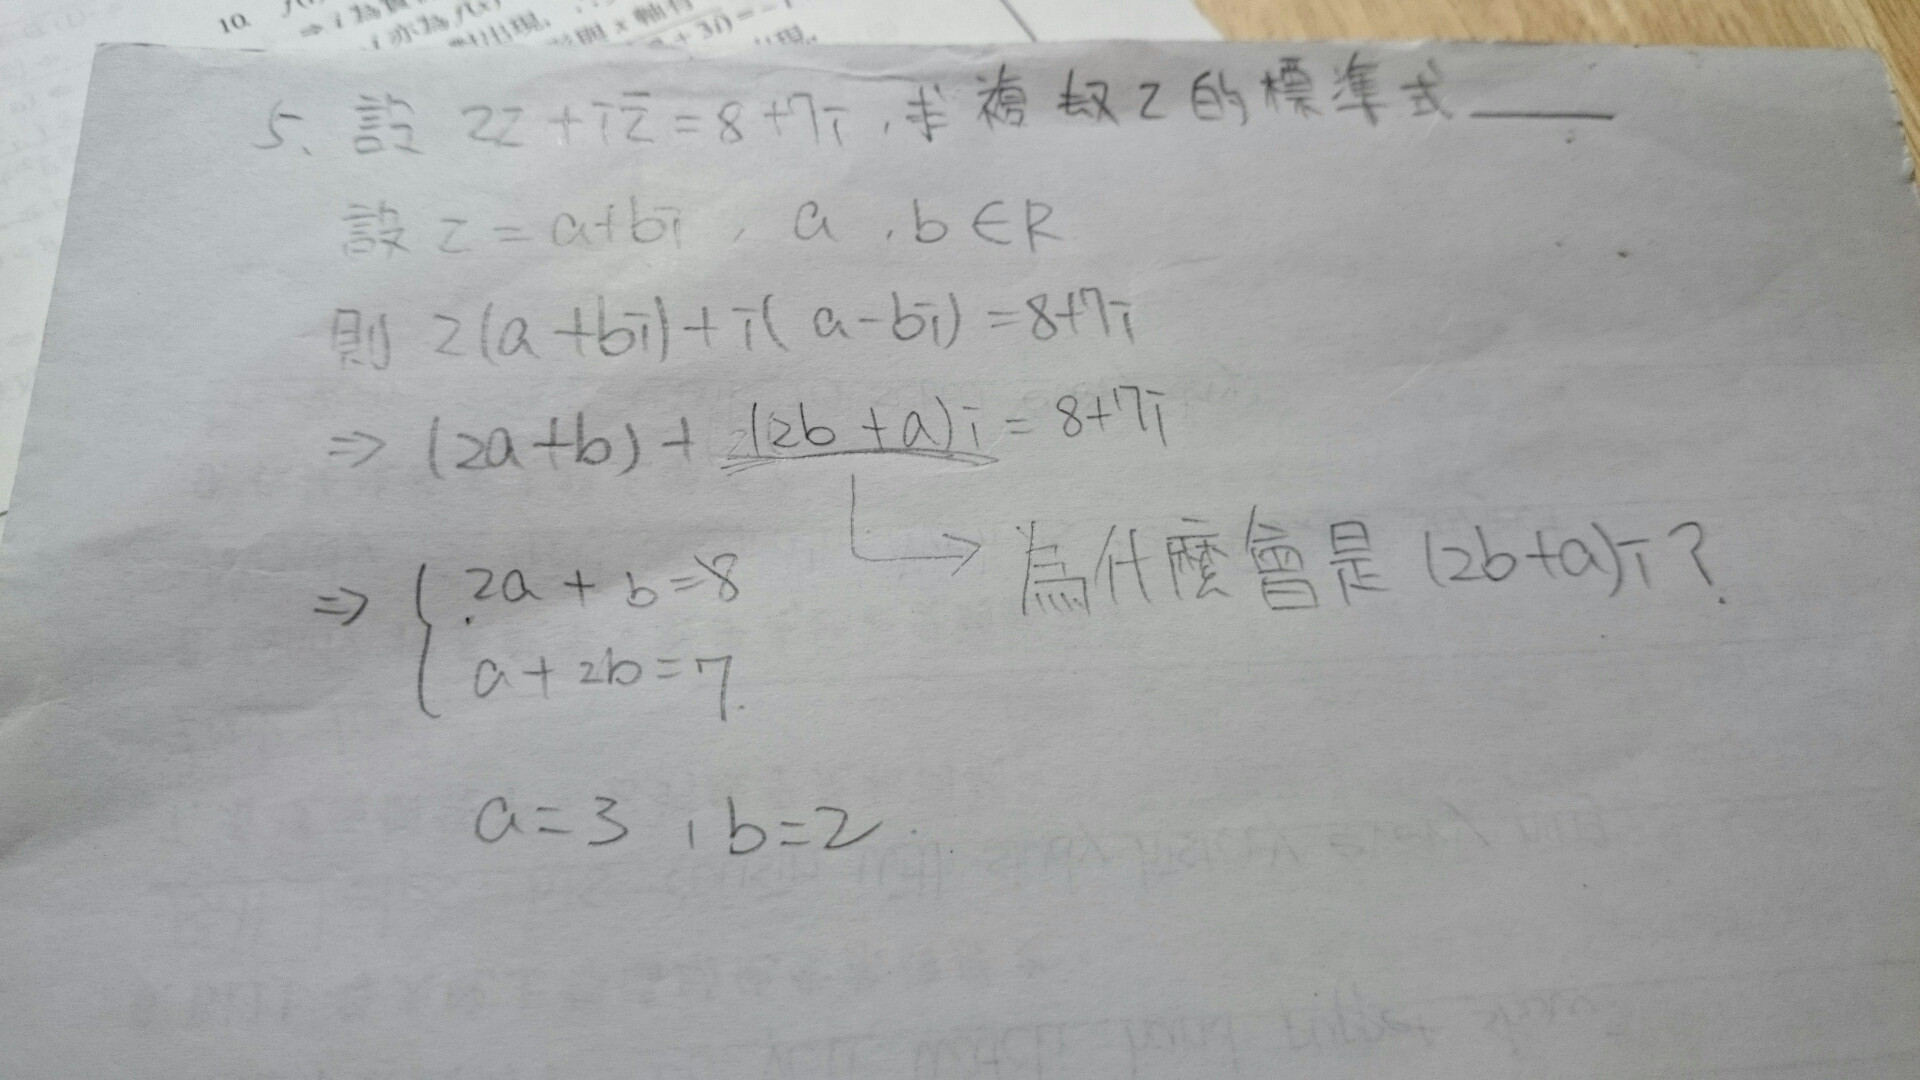 10.
5. 設 2z + i z̄ = 8 + 7i , 求 複 数 z 的 標 準 式 ____
設 z = a+bi , a , b ∈ R
則 2(a + bi) + i( a - bi) = 8+7i
⇒ (2a + b) + (2b + a)i = 8+7i
→ 為什麼會是 (2b+a)i ?
⇒ { 2a + b = 8
a + 2b = 7
a = 3 , b = 2